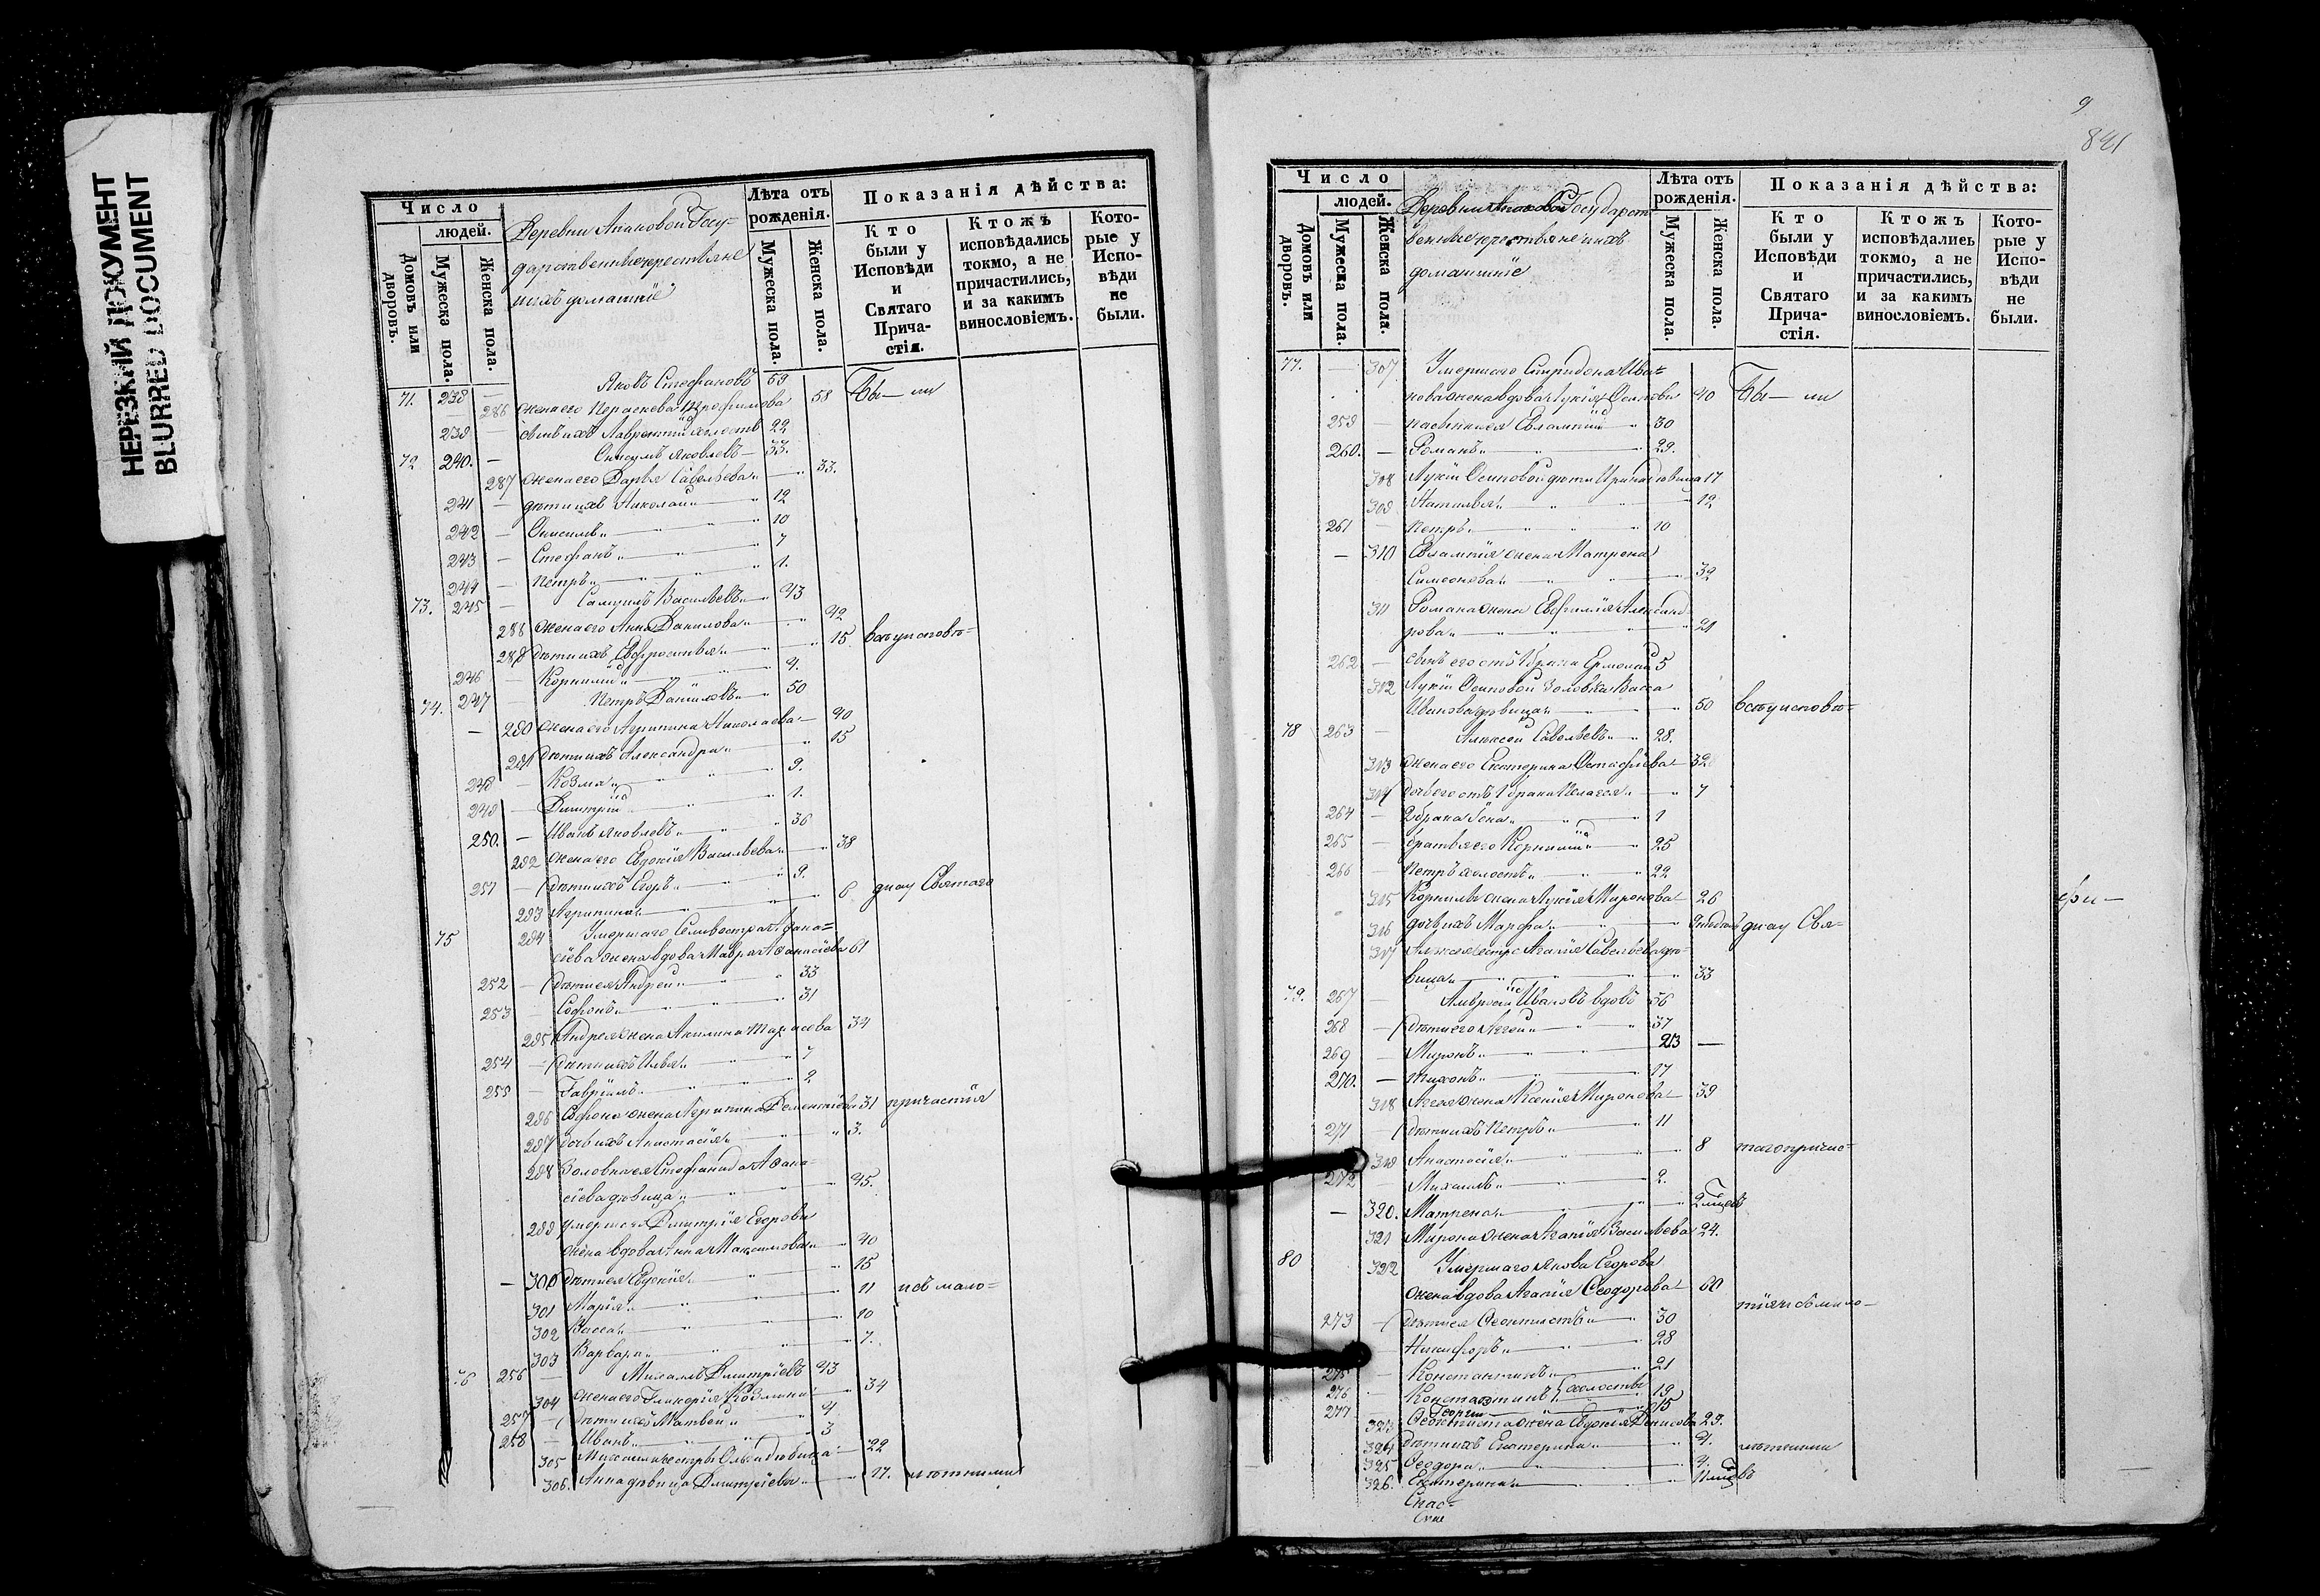 НЕРЕЗКИЙ ДОКУМЕНТ
BLURRED DOCUMENT
Число
людей.
Домовъ или дворовъ.
Мужеска пола.
Женска пола.
Деревни Апаковой Госу-
дарственные крестьяне
ихъ домашніе
Лѣта отъ рожденія.
Мужеска пола.
Женска пола.
Показанія дѣйства:
Кто были у Исповѣди и Святаго Прича-стія.
Ктожъ исповѣдались токмо, а не причастились, и за какимъ винословіемъ.
Кото-рые у Испо-вѣди не были.
71. 238 — Яковъ Стефановъ 59
— 286 жена его Параскева Трофимова 58 Бы— ли
239 — сынъ ихъ Лаврентій холостъ 22
72 240. — Самуилъ Яковлевъ — 33.
287 жена его Дарья Савельева 33.
241 — дѣти ихъ Николай 12
242 — 10
243 — Стефанъ 7
244 — Петръ 1.
73. 245 — Самуилъ Васильевъ 43
288 жена его Анна Данилова 42
289 дѣти ихъ Евфросинья 15 всѣ у исповѣ=
246 — Корнилій 9.
74. 247 Петръ Даниловъ 50
— 290 жена его Агрипина Николаева 40
291 дѣти ихъ Александра 15
248 — Козма 9.
249 — Димитрій 1.
250. — Иванъ Яковлевъ 36
292 жена его Евдокія Васильева 38
251 — дѣти ихъ Егоръ 9.
293 Агрипина 6 ди и у Святаго
75 294 Умершаго Селивестра Афана=
сіева жена вдова Мавра Афанасіева 61
252 — дѣти ея Андрей 33
253 — Софонъ 31
295 Андрея жена Акилина Тарасова 34
254 — дѣти ихъ Илья 7
255 — Гавріилъ 2
296 Софона жена Агрипина Дементіева 31 причастія
297 дочь ихъ Анастасія 3.
298 Золовка ея Стефанида Афана=
сіева дѣвица 45.
299 умершаго Димитрія Егорова
жена вдова Анна Максимова 40
— 300 дѣти ея Евдокія 15
301 Марія 11 и съ мало=
302 Васса 10
303 Варвара 7.
76 256 — Михаилъ Димитріевъ 43
304 жена его Гликерія Козмина 34
257 — дѣти ихъ Матвей 4
258 — Иванъ 3
305 Михаила сестры Ольга дѣвица 22
306. Анна дѣвица Димитріевы 17. лѣтними
9
841
Число
людей.
Домовъ или дворовъ.
Мужеска пола.
Женска пола.
Деревни Апаковой Государст
венные крестьяне и ихъ
домашніе
Лѣта отъ рожденія.
Мужеска пола.
Женска пола.
Показанія дѣйства:
Кто были у Исповѣди и Святаго Прича-стія.
Ктожъ исповѣдались токмо, а не причастились, и за какимъ винословіемъ.
Кото-рые у Испо-вѣди не были.
77. — 307 Умершаго Спиридона Ива=
нова жена вдова Лукія Осипова 40 Бы— ли
259 — Евлампій 30
260. — Романъ 29.
308 Лукіи Осиповой дѣти Ирина дѣвица 17
309 Наталья 12
261 — Петръ 10
— 310 Евлампія жена Матрена
Симеонова 32
311 Романа жена Евфимія Александ
рова 21
262 — сынъ его отъ 1 брака Ермолай 5
312 Лукіи Осиповой золовка Васса
Иванова дѣвица 50 всѣ у исповѣ=
78 263 — Алексей Савельевъ 28.
313 жена его Екатерина Остафіева 32
314 дочь его отъ 1 брака Пелагея 7
264 — 2 брака 1
265 — братья его Корнилій 25
266 — Петръ холостъ 22
315 Корнилія жена Лукія Миронова 26
ди и —
316 дочь ихъ Марфа ди и у Свя=
317 Алексея сестра Агапія Савельева дѣ=
вица 33
79. 267 — Амвросій Ивановъ вдовъ 56
268 — дѣти его Аггей 37
269 — Миронъ 23 —
270. — Тихонъ 17
318 Аггея жена Ксенія Миронова 39
271 — дѣти ихъ Петръ 11
319 Анастасія 8 таго прича=
272 — Михаилъ 2.
— 320. Матрена
321 Мирона жена Агапія Васильева 24.
80 322 Умершаго Якова Егорова
жена вдова Агапія Феодорова 60
стія и съ мало—
273 — дѣти ея Феоктистъ 30
Никифоръ 28
275 — Константинъ 21
276 Константинъ холосты 19
277 Георгій 15
323 Феоктиста жена Евдокія Денисова 29.
324 дѣти ихъ Екатерина 9. лѣтними
325 Феодора 4.
326. Екатерина
Спас=